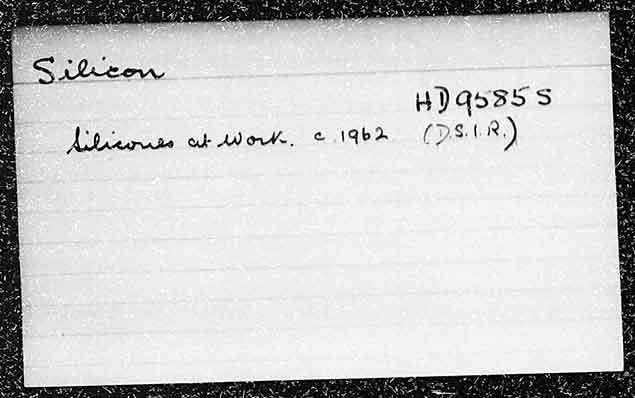 Silicon
HD9585S
Silicones at Work. c 1962 (D.S.I.R.)